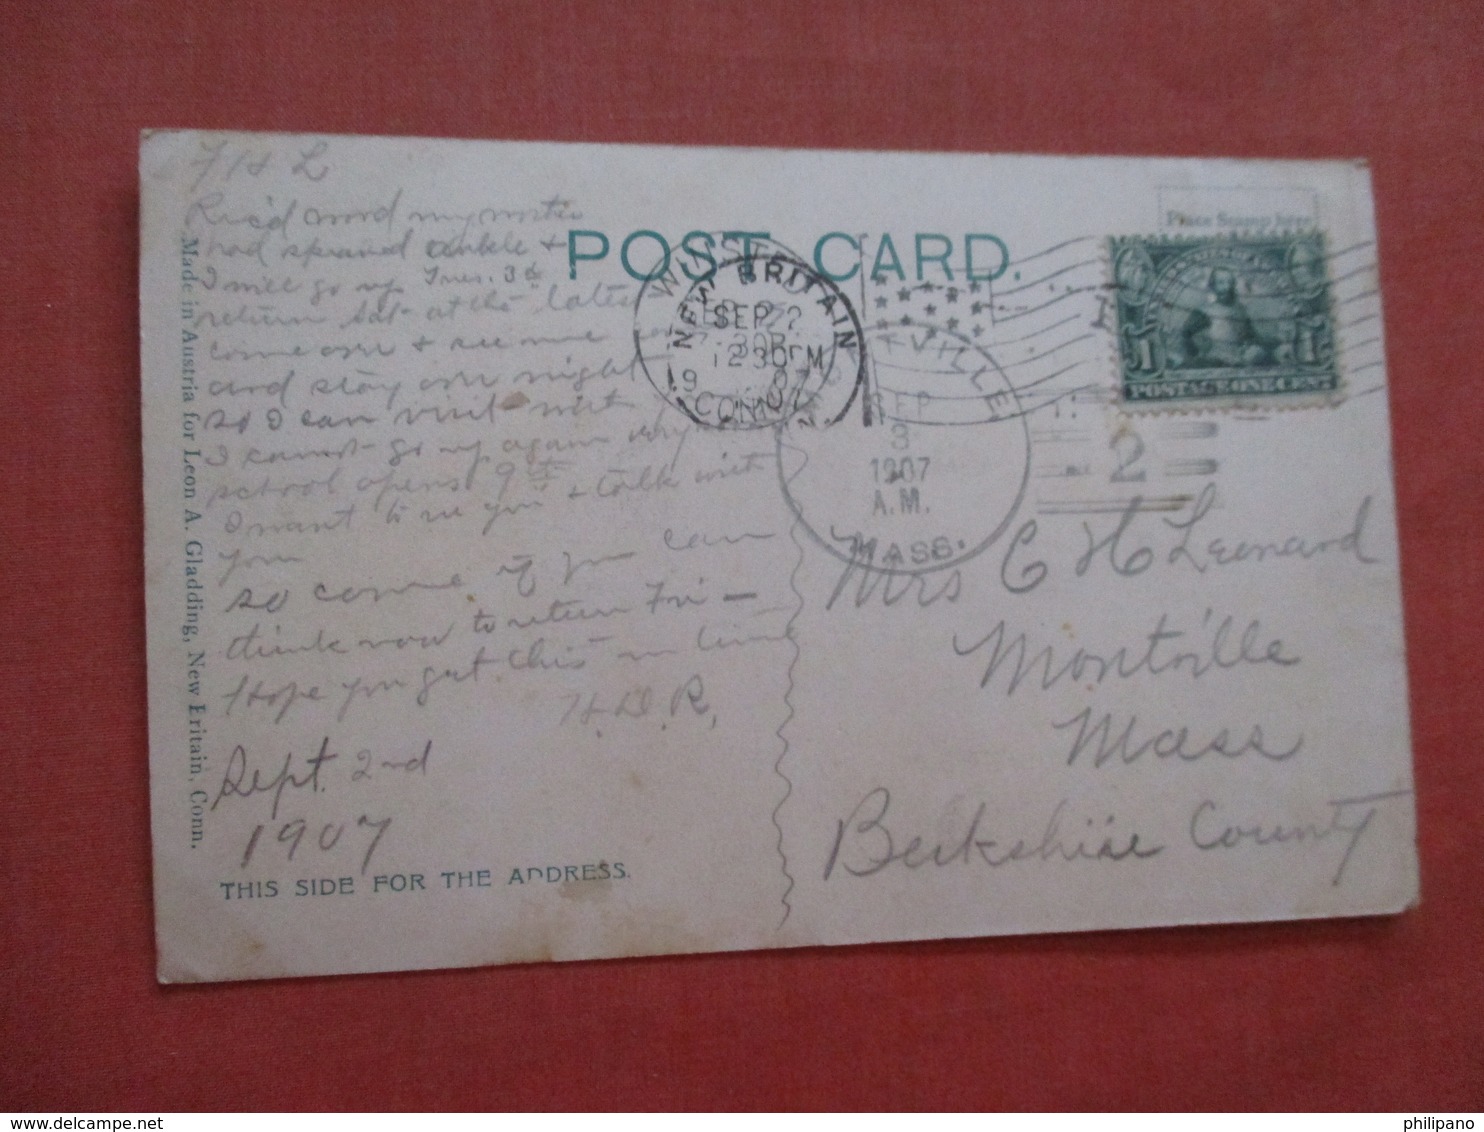 7 H L
Rec'd word my mother
had sprained ankle &
I will go up Tues. 3d
return Sat. at the latest
come over & see me
and stay over night
so I can visit with
I cannot go up again very
school opens 9th
I want to see you & talk with
you
so come if you can
think now to return Fri —
Hope you get this in time
H. D. R.
Sept. 2nd
1907
THIS SIDE FOR THE ADDRESS.
Made in Austria for Leon A. Gladding, New Britain, Conn.
POST CARD.
Place Stamp here
NEW BRITAIN
SEP 2
12 30 PM
CONN.
WINSTED
MONTVILLE
SEP
3
1907
A.M.
MASS.
2
1 1
POSTAGE ONE CENT
Mrs C H Leonard
Montville
Mass
Berkshire County
philipano